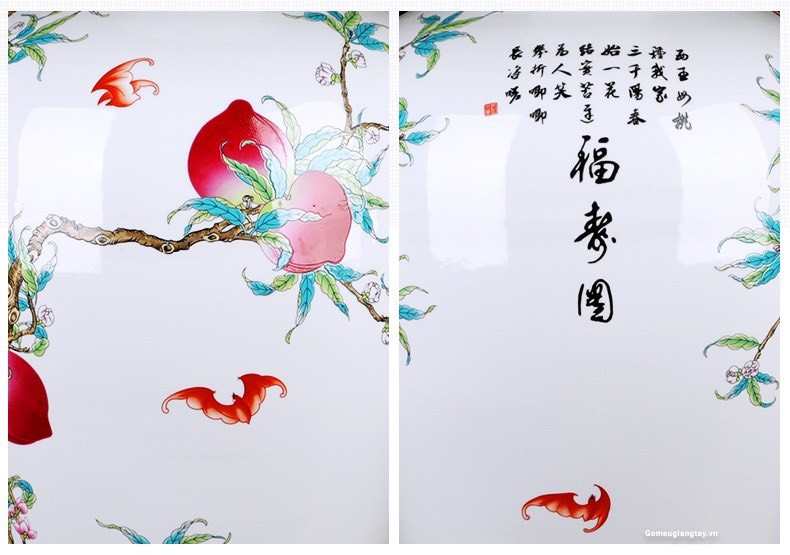 西王母桃
種我家
三千陽春
始一花
結實苦遲
為人笑
攀折唧唧
長咨嗟
福壽圖
Gomsugiangtay.vn